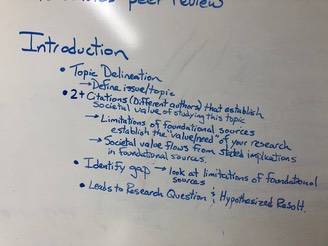 peer review
Introduction
• Topic Delineation
→ Define issue/topic
• 2+ Citations (Different authors) that establish
societal value of studying this topic
→ Limitations of foundational sources
establish the "value/need" of your research
→ Societal value flows from stated implications
in foundational sources.
• Identify gap → look at limitations of foundational
sources
• Leads to Research Question & Hypothesized Result.